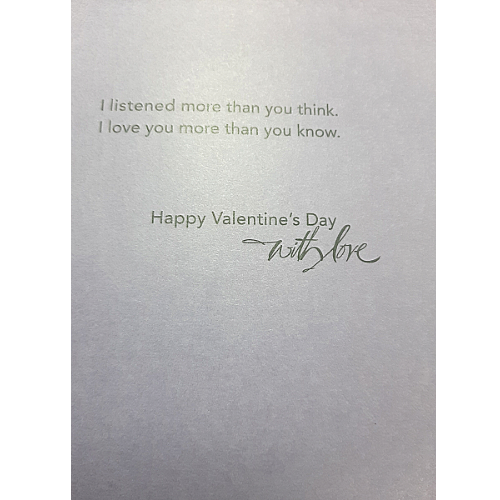 I listened more than you think.
I love you more than you know.
Happy Valentine's Day
with love